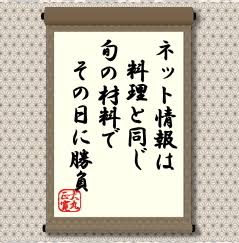 ネット情報は
料理と同じ
旬の材料で
その日に勝負